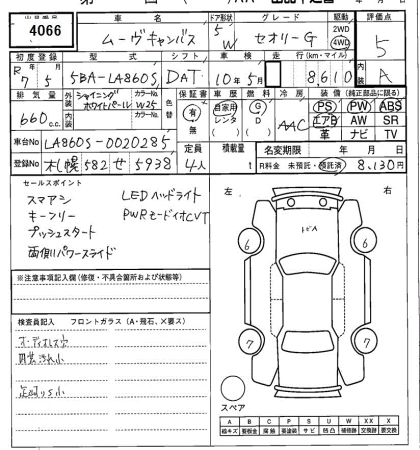 出品番号 車名 ドア形状 グレード 駆動 評価点
4066 ムーヴキャンバス 5 W セオリーG 2WD 4WD 5
初度登録 型式 シフト 車検 走行(km・マイル) 内装
R 7年 5月 5BA-LA860S DAT 10年5月 8,610 A
排気量 外装 シャイニングホワイトパール カラーNo. W25 色替 保証書 車歴 燃料 冷房 装備(純正部品に限る)
660cc 内装 カラーNo. 有 無 自家用 レンタ D G D AAC PS PW ABS
エアB AW SR
革 ナビ TV
車台No LA860S-0020285 定員 積載量 名変期限 年 月 日
登録No 札幌 582 せ 5938 4人 t R料金 未預託・預託済 8,130円
セールスポイント
スマアシ LEDヘッドライト
キーフリー PWRモード付CVT
プッシュスタート
両側パワースライド
※注意事項記入欄(修復・不具合箇所および状態等)
検査員記入 フロントガラス(A・飛石、X要ス)
左 右
6 6
7 7
スペア
A B C P S U W X XX